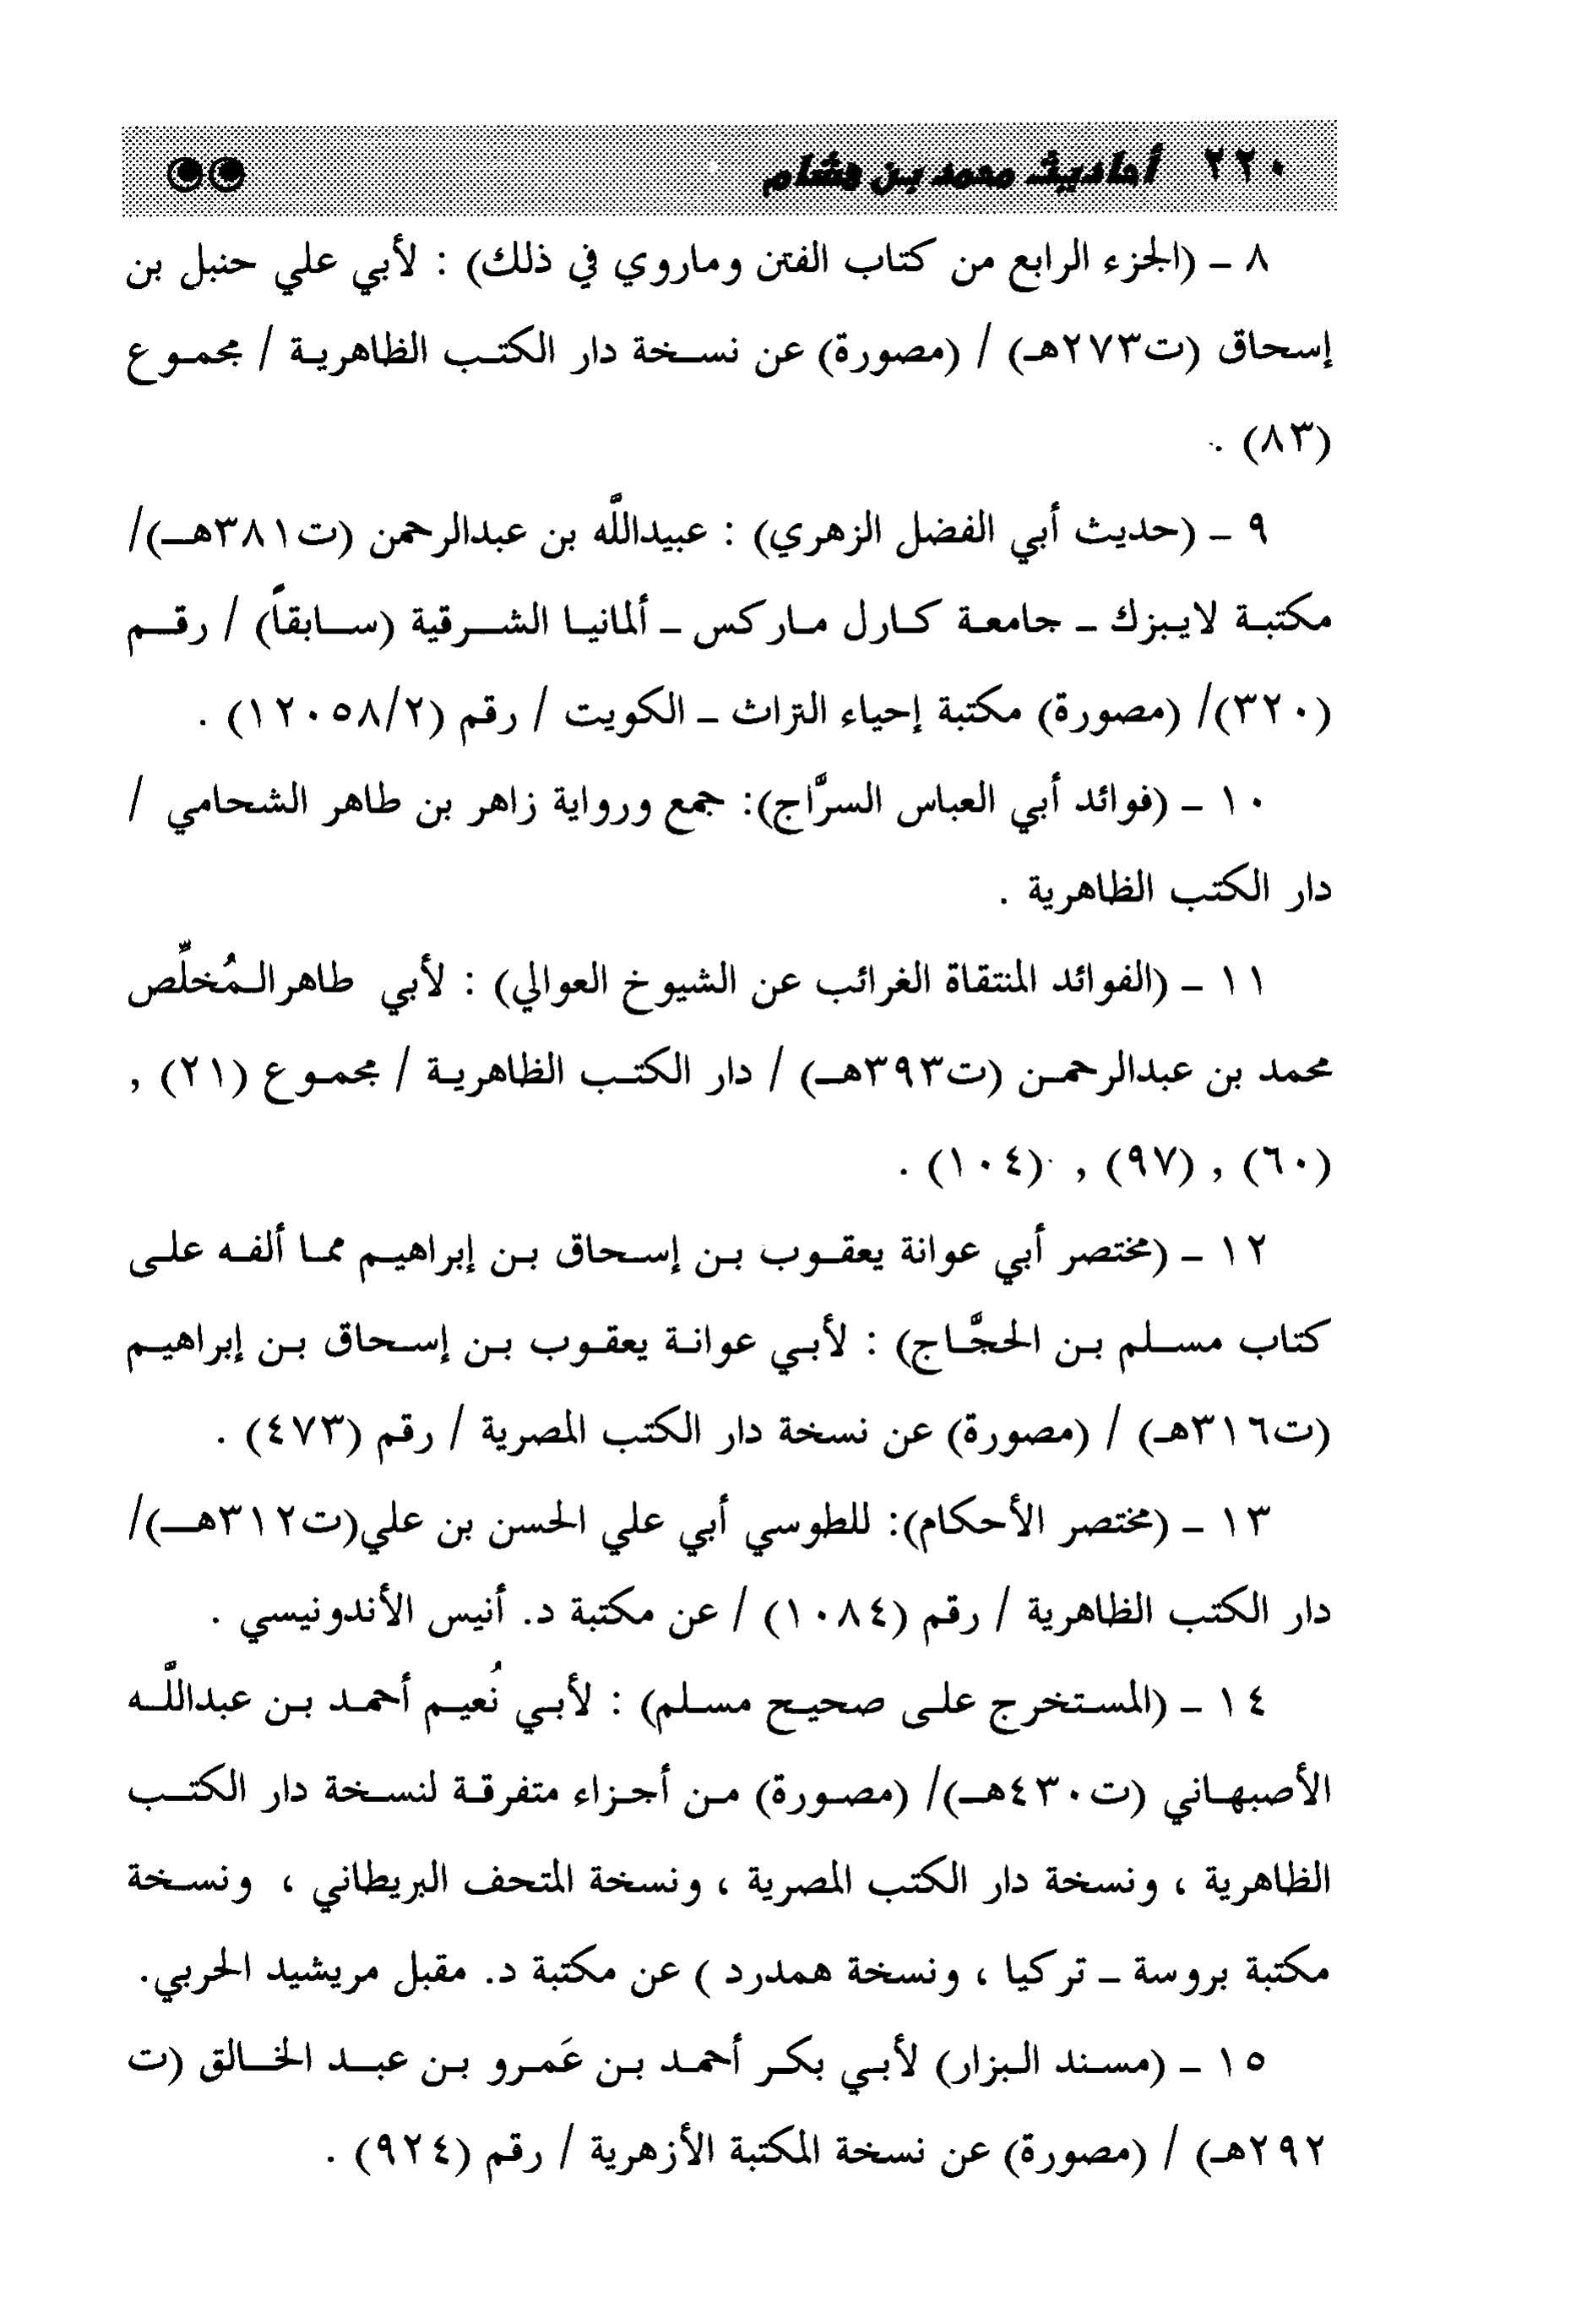 ٢٢٠ أحاديث محمد بن هشام
٨ - (الجزء الرابع من كتاب الفتن وماروي في ذلك) : لأبي علي حنبل بن
إسحاق (ت٢٧٣هـ) / (مصورة) عن نسخة دار الكتب الظاهرية / مجموع
(٨٣) .
٩ - (حديث أبي الفضل الزهري) : عبيداللَّه بن عبدالرحمن (ت٣٨١هـ)/
مكتبة لايبزك - جامعة كارل ماركس - ألمانيا الشرقية (سابقاً) / رقم
(٣٢٠)/ (مصورة) مكتبة إحياء التراث - الكويت / رقم (١٢٠٥٨/٢) .
١٠ - (فوائد أبي العباس السرَّاج): جمع ورواية زاهر بن طاهر الشحامي /
دار الكتب الظاهرية .
١١ - (الفوائد المنتقاة الغرائب عن الشيوخ العوالي) : لأبي طاهرالـمُخلِّص
محمد بن عبدالرحمن (ت٣٩٣هـ) / دار الكتب الظاهرية / مجموع (٢١) ,
(٦٠) , (٩٧) , (١٠٤) .
١٢ - (مختصر أبي عوانة يعقوب بن إسحاق بن إبراهيم مما ألفه على
كتاب مسلم بن الحجَّاج) : لأبي عوانة يعقوب بن إسحاق بن إبراهيم
(ت٣١٦هـ) / (مصورة) عن نسخة دار الكتب المصرية / رقم (٤٧٣) .
١٣ - (مختصر الأحكام): للطوسي أبي علي الحسن بن علي(ت٣١٢هـ)/
دار الكتب الظاهرية / رقم (١٠٨٤) / عن مكتبة د. أنيس الأندونيسي .
١٤ - (المستخرج على صحيح مسلم) : لأبي نُعيم أحمد بن عبداللَّه
الأصبهاني (ت٤٣٠هـ)/ (مصورة) من أجزاء متفرقة لنسخة دار الكتب
الظاهرية ، ونسخة دار الكتب المصرية ، ونسخة المتحف البريطاني ، ونسخة
مكتبة بروسة - تركيا ، ونسخة همدرد ) عن مكتبة د. مقبل مريشيد الحربي.
١٥ - (مسند البزار) لأبي بكر أحمد بن عَمرو بن عبد الخالق (ت
٢٩٢هـ) / (مصورة) عن نسخة المكتبة الأزهرية / رقم (٩٢٤) .